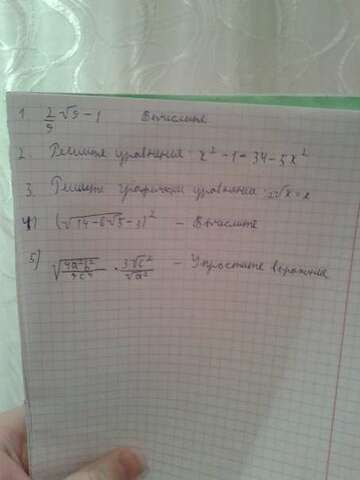 1. 2/9 √9 - 1 Вычислите
2. Решите уравнения: x² - 1 = 34 - 5x²
3. Решите графически уравнение: 2√x = x
4) (√(14 - 6√5) - 3)² - Вычислите
5) √(4a²b²/9c⁴) · 3√c²/√a² - Упростите выражения